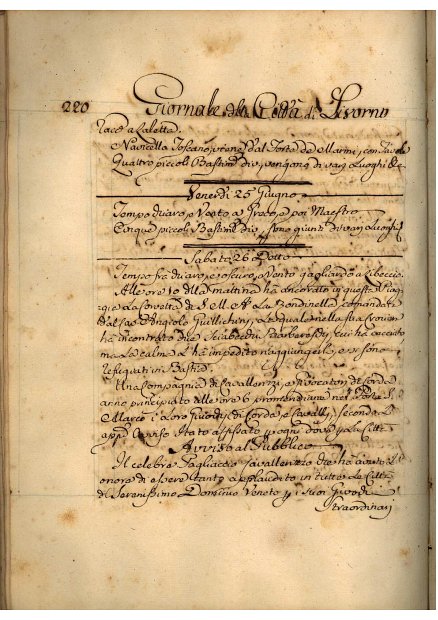 220
Giornale della Città di Livorno
Tacò a Caletta.
Navicella Toscano, viene dal Forte de Marmi, con Tavole
Quattro piccoli Bastim.ti div. vengono di varj Luoghi &c.
Venerdì 25 Giugno
Tempo chiaro, e Vento a Greco, e poi Maestro
Cinque piccoli Bastim.ti div. sono giunti di varj Luoghi
Sabato 26 Detto
Tempo fra chiaro, e oscuro, e Vento gagliardo a Libeccio
Alle ore 10 della mattina ha ancorato in questa Piag-
gia la Corvetta di S. M. La Rondinella comandata
Dal Cav. Angiolo Guillichini, la quale nella sua Crociera
ha incontrato due Sciabecchi Barbareschi, cui ha
ma la calma l'ha impedito raggiungerli, e si sono
refugiati in Bastia.
Una Compagnia di Cavallerizzi, e Giocatori di Corda
anno principiato alle ore 6 pomeridiane nel S.
Marco i loro Giuochi di Corda, e Cavalli, secondo L'
Avviso Stato affissato p ogni dove p la Città
Avviso al Pubblico
Il celebre Pagliaccio Cavallerizzo che ha avuto l'
onore di essere tanto applaudito in tutte le Città
di Serenissimo Dominio Veneto p i suoi Giuochi
Straordinarj